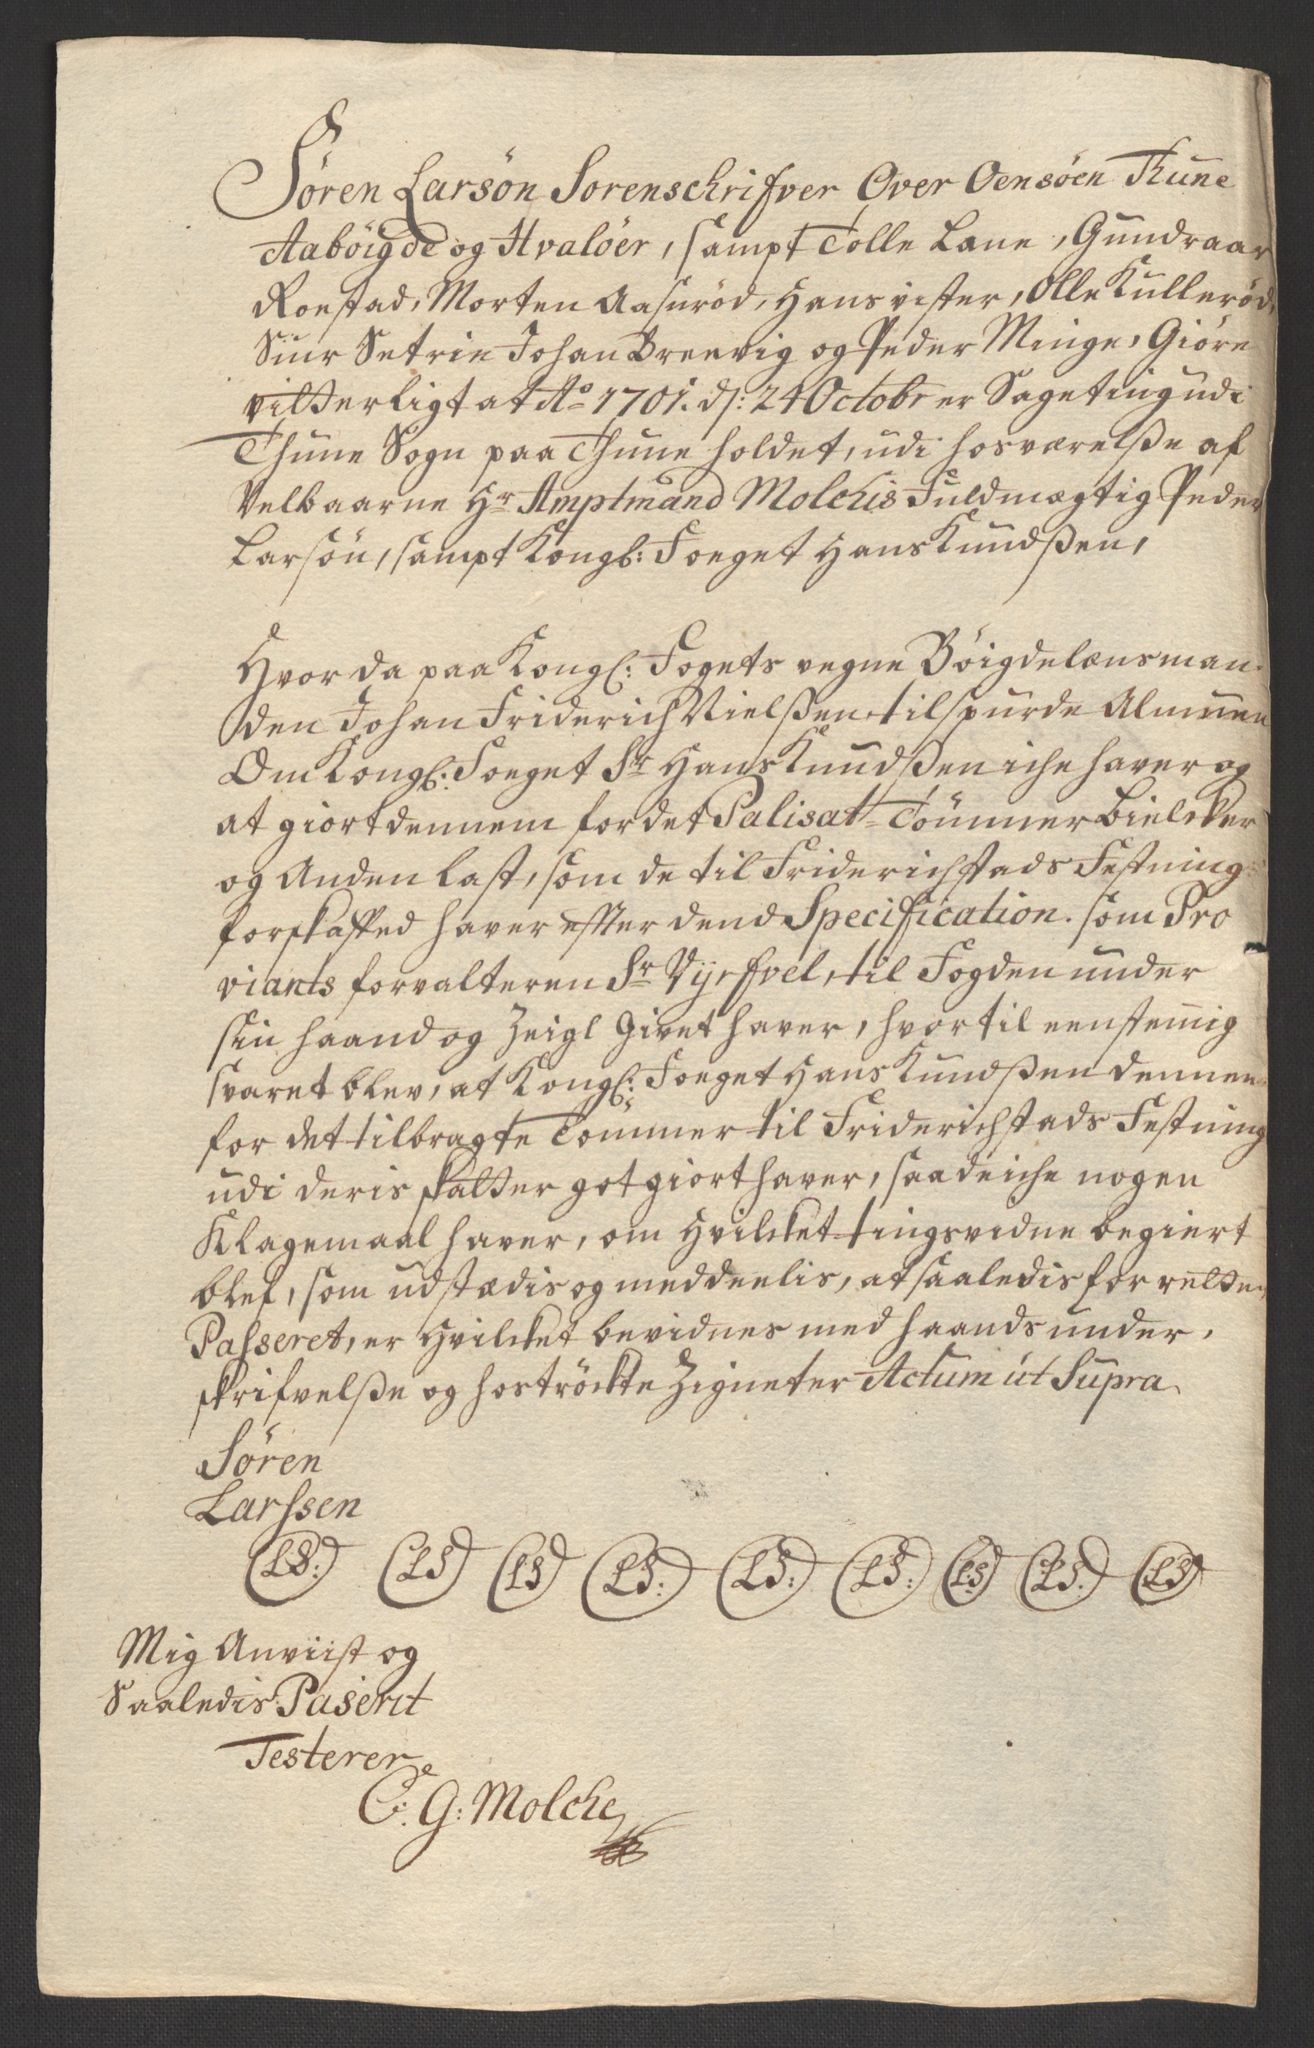 Søren Larsøn Sorenschrifver Over Oensøen Thune
Aabøigde og Hvaløer, sampt Tolle Lane, Gundraar
Roestad, Morten Aasurød, Hans vister, Olle Kullerød,
Siur Setrie Johan Breevig og Peder Minge, Giøre
vitterligt at Ao 1701. d: 24 Octobr er Sageting udi
Thune Sogn paa Thune holdet, udi hosværelße af
Velbaarne Hr Amptmand Molchis Fuldmægtig Peder
Larsøn, sampt Kongl: Foeget Hans Knudßen,
Hvor da paa Kongl: Fogets vegne Bøigdelænsman-
den Johan Friderich Nielßen tilspurde Almuen
Om Kongl: Foeget Sr Hans Knudßen iche haver og
at giort dennem for det Palisat-Tømmer bielcker
og Anden last, som de til Friderichstads Festning
forskaffed haver effter dend Specification. som Pro
viants forvalteren Sr Vyrfvel, til Fogden under
sin haand og Zeigl Givet haver, hvortil eenstemig
svaret blev, at Kongl: Foeget Hans Knudßen dennem
for det tilbragte Tømmer til Friderichstads Festning
udi deris skatter got giort haver, saa de iche nogen
Klagemaal haver, om hvilcket tingsvidne begiert
blef, som udstædis og meddeelis, at saaledis for retten
Passeret, er hvilcket bevidnes med haands under,
skrifvelße og hostrøckte Zigneter Actum ut Supra.
Søren
Larssen
LS: LS LS LS: LS: LS: LS LS. LS
Mig Anviist og
Saaledis Paserit
Testerer
C: G: Molche